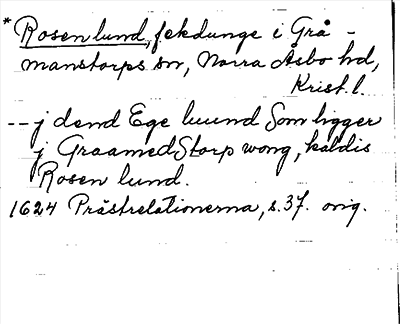 * Rosenlund, fekdunge i Grå-
manstorps sn, Norra Åsbo hd,
Krist. l.
-- j dend Ege luund Som ligger
j GraamedStorp wong, kaldis
Rosen lund.
1624 Prästrelationerna, s. 37. orig.